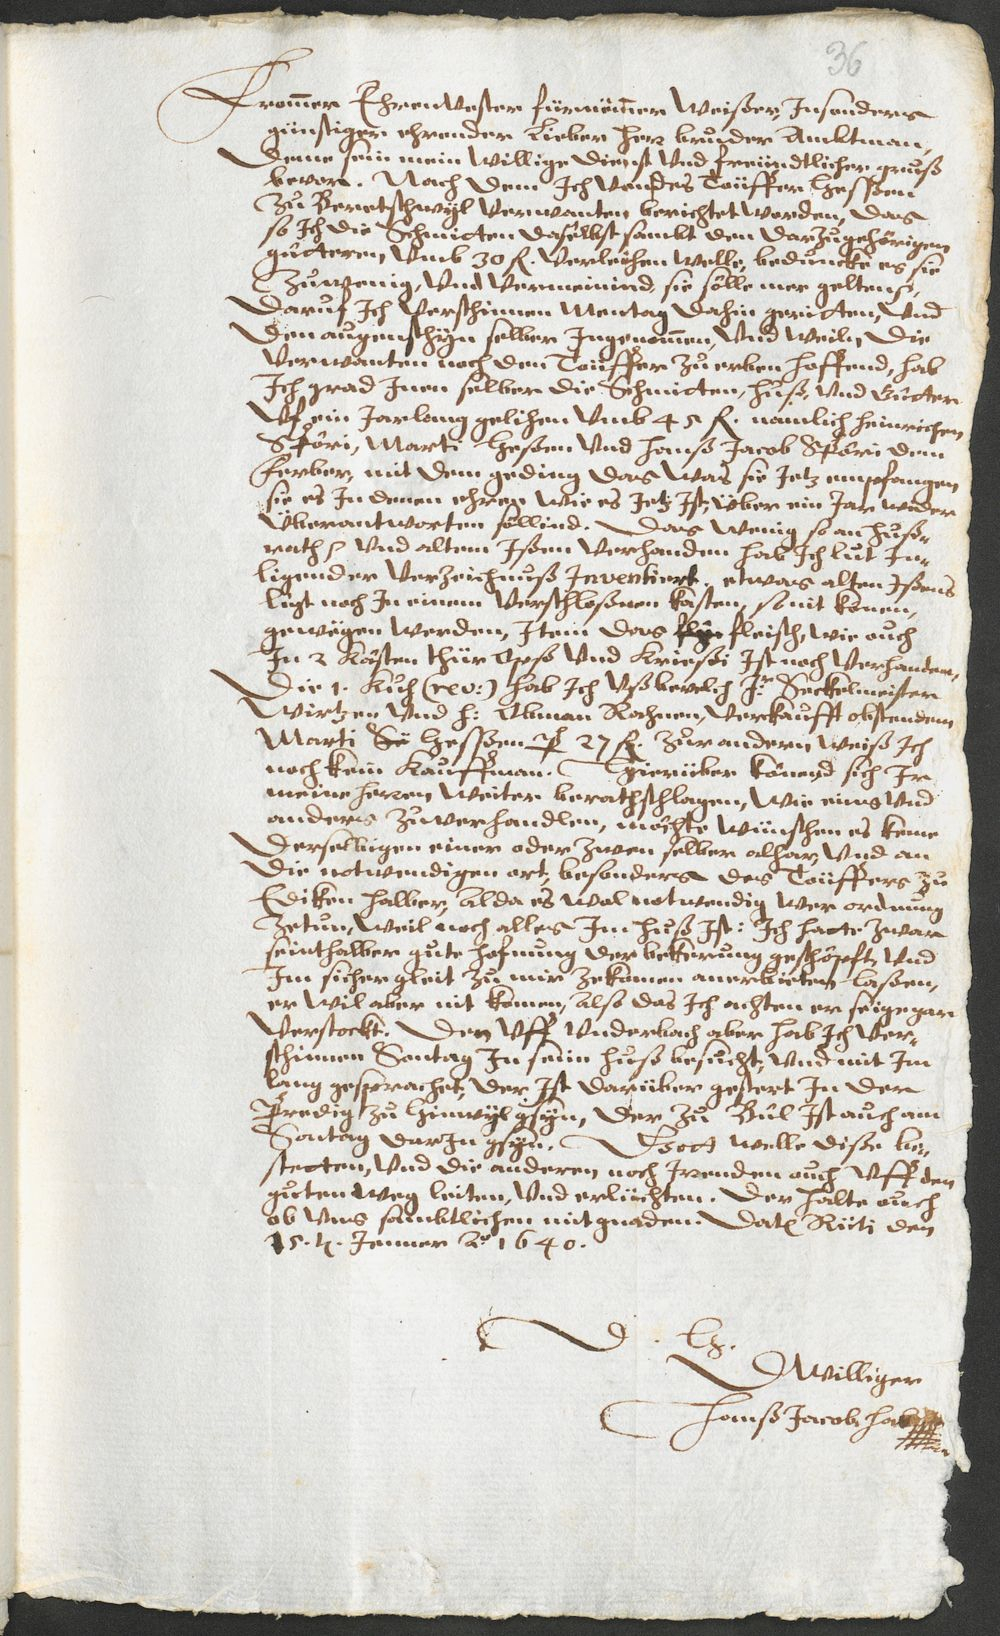 36
Fromer EhrenVester fürnëmer Weißer, Insonders
günstiger ehrender Lieber Herr bruder Ambtman,
Deme sein mein willige dienst Vnd freündtlicher gruß
bevor. Nach dem Ich Von des Töüffer Heßen
zu Beretschwyl Verwanten berichtet worden, das
so Ich die Schmitten daselbst sambt den darzugehörigen
gütteren, Vmb 30 fl. Verlechen welle, bedunckte es sie
Zuwenig, Vnd Vermeinind sie sölle mer geltens,
Daruf Ich Verschinnen Mentag dahin geritten, Vnd
den augenschyn selber Ingenomen, Vnd weiln die
Verwanten noch den Töüffer zu erben hoffend, hab
Ich grad Inen selber die Schmitten, huß, Vnd Gütter
Vf ein Jarlang gelihen Vmb 45 fl. namlich Heinrichen
Spöri, Marti Heßen Vnd Hanß Jacob Spöri dem
Ferber, mit dem geding das was sie Jetz empfangen
sie es In denen ehren wie es Jetz Ist, über ein Jar wider
überantworten söllind. Das wenig so an huß-
rath Vnd altem Ißen Verhanden hab Ich lut In-
ligender Verzeichnuß Inventiert. etwas alten Ißens
ligt noch In einem Verschloßnen kasten, so nit könen,
gewëgen werden, Item das fleisch, wie ouch
In 2 kästen thür Opß Vnd krießi Ist noch Verhanden,
Die 1. Kuh (rev:) hab Ich Vß bevelch Jr. Seckelmeister
Wirtzen Vnd h: Obman Rahnen, Verkaufft obstendem
Marti Heßen p 27 fl. zur andern weiß Ich
noch kein Kauffman. Hierüber könend sich Ir
meine herren weiter berathschlagen, wie eins Vnd
anders zuverhandlen, möchte wünschen es keme
derselbigen einer oder zwen selber alhar, Vnd an
die notwendigen ort, besonders des Töüffers zu
Ediken halber, alda es wol notwendig wer ordnung
zetun, weil noch alles Im huß Ist: Ich hatte zwar
seinthalber gute hofnung der bekerung geschöpft, Vnd
Im sicher gleit zu mir zekomen anerbieten laßen,
er wil aber nit komen, also das Ich achten er seige gar
Verstockt. Den Vff Vnderbach aber hab Ich Ver-
schinnen Sontag In seim huß besucht, Vnd mit Im
lang gesprachet, der Ist darüber gestert In der
Predig zu Hinwyl gsyn, der zu Bül Ist auch am
Sontag darIn gsyn. Gott welle diße be-
stetten, Vnd die anderen noch Irrenden ouch Vff den
guten weg leiten, Vnd erlüchten. Der halte ouch
ob Vns sambtlichen mit gnaden. Dat Rüti den
15. t. Jenner Ao 1640.
D. H.
Williger
Hanß Jacob